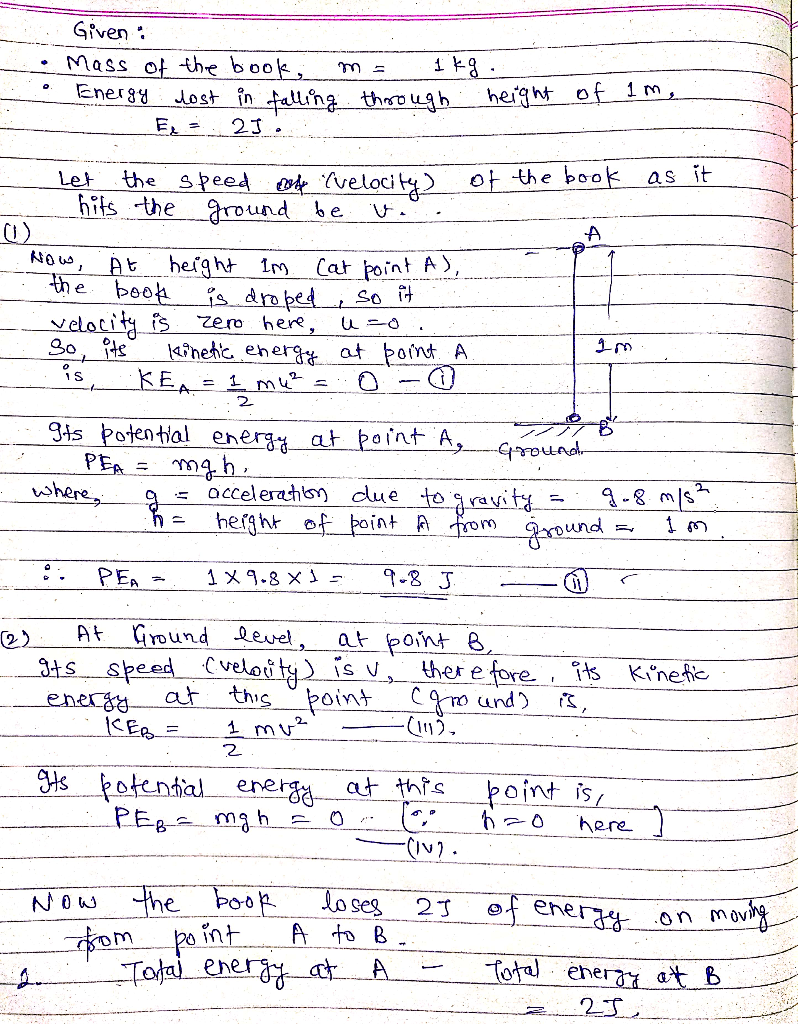 Given :
• Mass of the book, m = 1 kg.
• Energy lost in falling through height of 1 m,
El = 2J.
Let the speed (velocity) of the book as it
hits the ground be v.
(1)
A
Now, At height 1m (at point A),
the book is droped, so it
velocity is zero here, u = 0.
So, its kinetic energy at point A
1m
is, KE_A = 1/2 mu² = 0 — (i)
B
Its potential energy at point A,
Ground.
PE_A = mgh.
where, g = acceleration due to gravity = 9.8 m/s²
h = height of point A from ground = 1 m.
∴ PE_A = 1 × 9.8 × 1 = 9.8 J — (ii)
(2) At Ground level, at point B,
Its speed (velocity) is v, therefore, its Kinetic
energy at this point (ground) is,
KE_B = 1/2 mv² — (iii).
Its potential energy at this point is,
PE_B = mgh = 0 [∵ h = 0 here]
— (iv).
Now the book loses 2J of energy on moving
from point A to B.
Total energy at A – Total energy at B
= 2J,